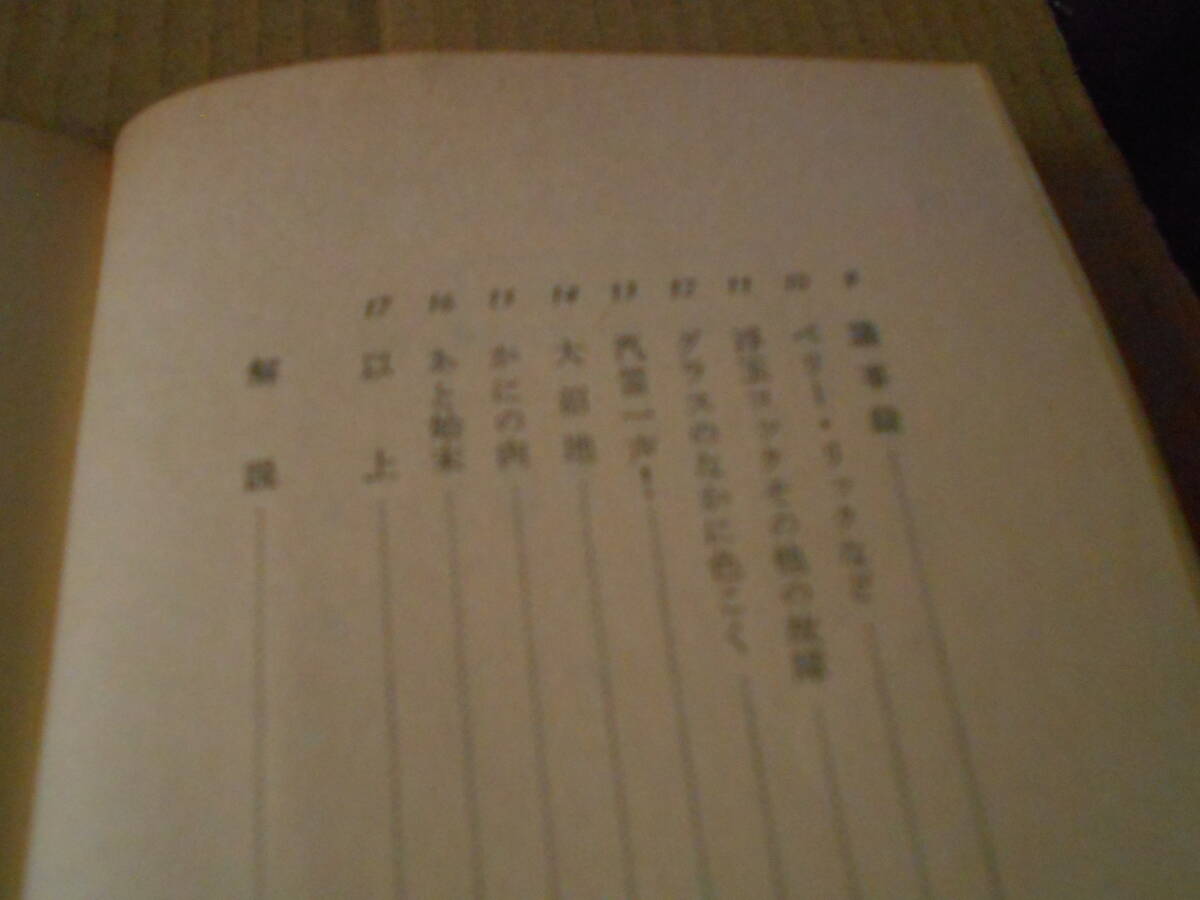 9 議事録
10 ペリー・リッチなど
11 浮玉コックその他の
12 グラスのなかに色こく
13 汽笛一声!
14 大詰地
15 かにの肉
16 あと始末
17 以上
解説